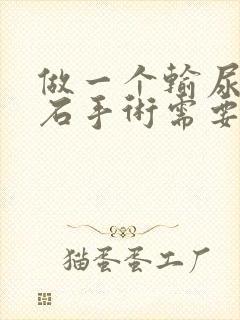 做一个输尿
石手術需要
猫蛋蛋工厂